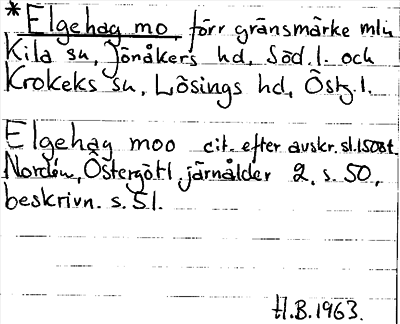 * Elgehag mo, förr gränsmärke mln
Kila sn, Jönåkers hd, Söd.l. och
Krokeks sn, Lösings hd, Östg.l.
Elgehag moo cit. efter avskr. sl.1500t.
Nordén, Östergötl. järnålder 2, s. 50,
beskrivn. s. 51.
H.B.1963.